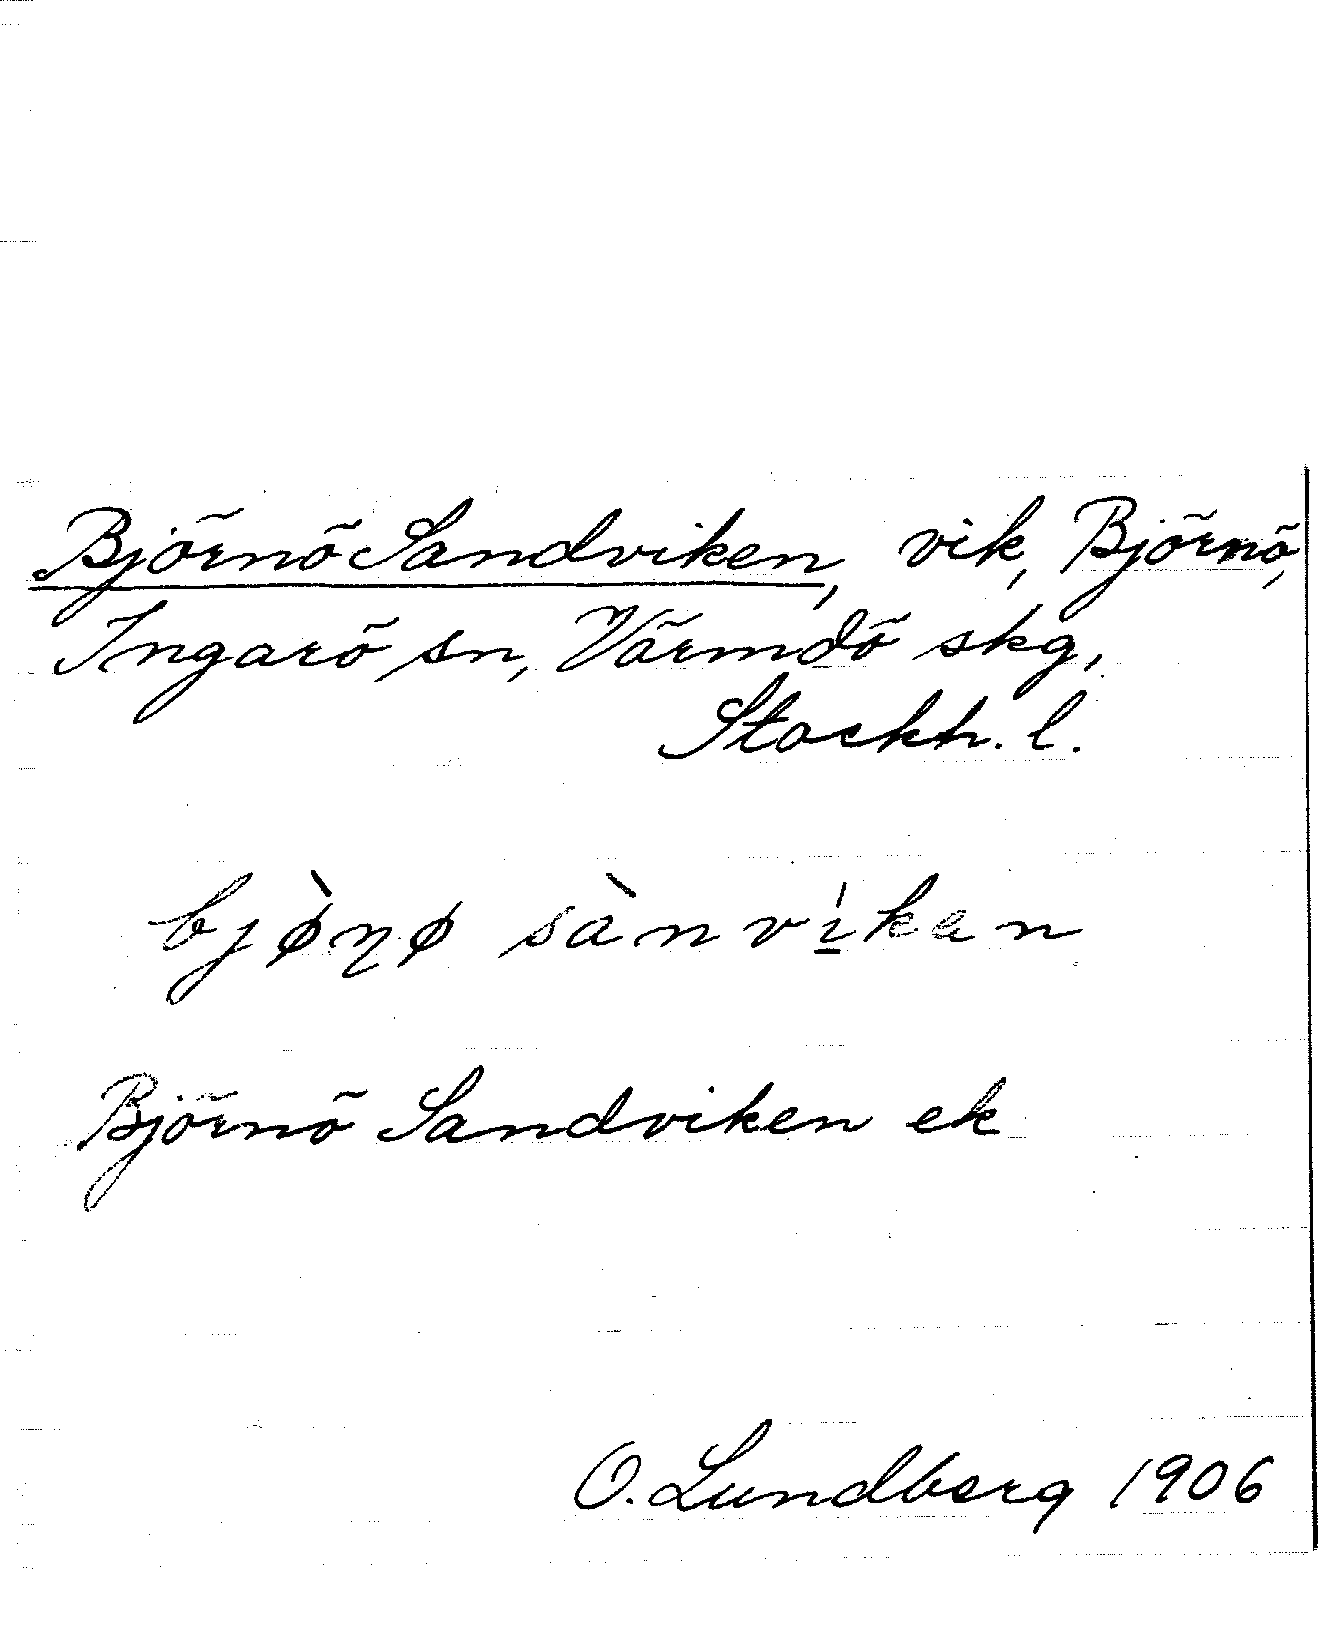 Björnö Sandviken, vik, Björnö,
Ingarö sn, Värmdö skg,
Stockh. l.
bjø̀ɳø sànvi̱̍kan
Björnö Sandviken ek
O. Lundberg 1906